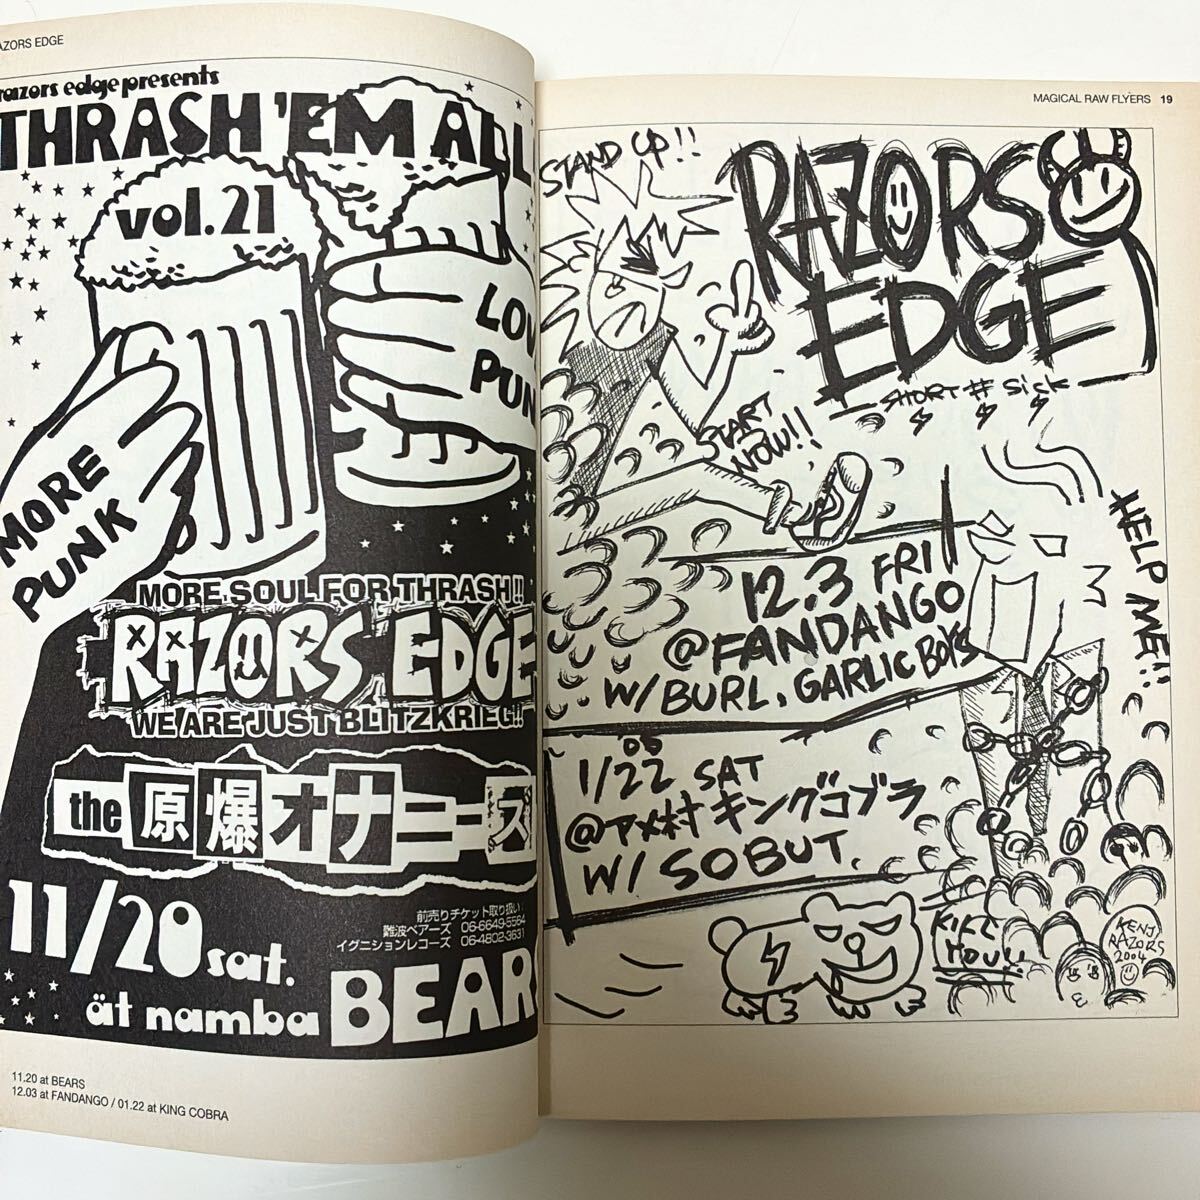 AZORS EDGE
razors edge presents
THRASH 'EM ALL
vol.21
LOV
PUN
MORE
PUNK
MORE SOUL FOR THRASH!!
RAZORS EDGE
WE ARE JUST BLITZKRIEG!!
the 原爆オナニーズ
11/20 sat.
前売りチケット取り扱い:
難波ベアーズ 06-6649-5564
イグニションレコーズ 06-4802-3631
ät namba BEARS
11.20 at BEARS
12.03 at FANDANGO / 01.22 at KING COBRA
MAGICAL RAW FLYERS 19
STAND UP!!
RAZORS
EDGE
SHORT # SICK
START
NOW!!
HELP ME!!
12.3 FRI
@FANDANGO
W/ BURL, GARLIC BOYS
'05
1/22 SAT
@アメ村 キングコブラ
W/ SOBUT
KILL
YOU!!
KENJI
RAZORS
2004